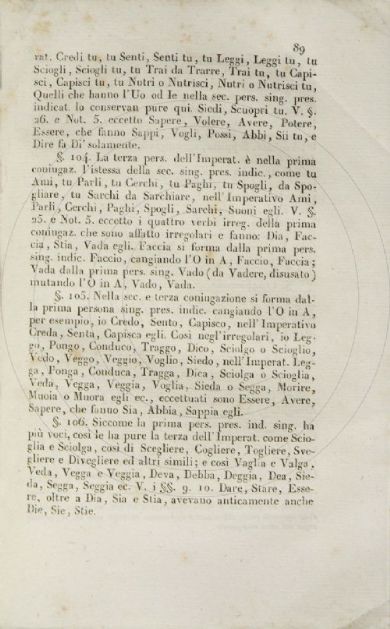 89
rat. Credi tu, tu Senti, Senti tu, tu Leggi, Leggi tu, tu
Sciogli, Sciogli tu, tu Trai da Trarre, Trai tu, tu Capi-
sci, Capisci tu, tu Nutri o Nutrisci, Nutri o Nutrisci tu,
Quelli che hanno l'Uo od Ie nella sec. pers. sing. pres.
indicat. lo conservan pure qui. Siedi, Scuopri tu. V. §.
26. e Not. 5. eccetto Sapere, Volere, Avere, Potere,
Essere, che fanno Sappi, Vogli, Possi, Abbi, Sii tu, e
Dire fa Di' solamente.
§. 104. La terza pers. dell'Imperat. è nella prima
coniugaz. l'istessa della sec. sing. pres. indic., come tu
Ami, tu Parli, tu Cerchi, tu Paghi, tu Spogli, da Spo-
gliare, tu Sarchi da Sarchiare, nell'Imperativo Ami,
Parli, Cerchi, Paghi, Spogli, Sarchi, Suoni egli. V. §.
25. e Not. 5. eccetto i quattro verbi irreg. della prima
coniugaz. che sono affatto irregolari e fanno: Dia, Fac-
cia, Stia, Vada egli. Faccia si forma dalla prima pers.
sing. indic. Faccio, cangiando l'O in A, Faccio, Faccia;
Vada dalla prima pers. sing. Vado (da Vadere, disusato)
mutando l'O in A, Vado, Vada.
§. 105. Nella sec. e terza coniugazione si forma dal-
la prima persona sing. pres. indic. cangiando l'O in A,
per esempio, io Credo, Sento, Capisco, nell'Imperativo
Creda, Senta, Capisca egli. Così negl'irregolari, io Leg-
go, Pongo, Conduco, Traggo, Dico, Sciolgo o Scioglio,
Vedo, Veggo, Veggio, Voglio, Siedo, nell'Imperat. Leg-
ga, Ponga, Conduca, Tragga, Dica, Sciolga o Scioglia,
Veda, Vegga, Veggia, Voglia, Sieda o Segga, Morire,
Muoia o Muora egli ec., eccettuati sono Essere, Avere,
Sapere, che fanno Sia, Abbia, Sappia egli.
§. 106. Siccome la prima pers. pres. ind. sing. ha
più voci, così le ha pure la terza dell'Imperat. come Scio-
glia e Sciolga, così di Scegliere, Cogliere, Togliere, Sve-
gliere e Divegliere ed altri simili; e così Vaglia e Valga,
Veda, Vegga e Veggia, Deva, Debba, Deggia, Dea, Sie-
da, Segga, Seggia ec. V. i §§. 9. 10. Dare, Stare, Esse-
re, oltre a Dia, Sia e Stia, avevano anticamente anche
Die, Sie, Stie.